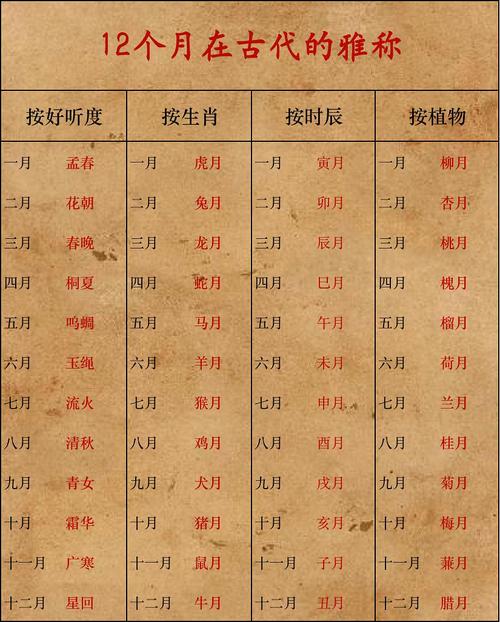 12个月在古代的雅称
按好听度 按生肖 按时辰 按植物
一月 孟春 一月 虎月 一月 寅月 一月 柳月
二月 花朝 二月 兔月 二月 卯月 二月 杏月
三月 春晚 三月 龙月 三月 辰月 三月 桃月
四月 桐夏 四月 蛇月 四月 巳月 四月 槐月
五月 鸣蜩 五月 马月 五月 午月 五月 榴月
六月 玉绳 六月 羊月 六月 未月 六月 荷月
七月 流火 七月 猴月 七月 申月 七月 兰月
八月 清秋 八月 鸡月 八月 酉月 八月 桂月
九月 青女 九月 犬月 九月 戌月 九月 菊月
十月 霜华 十月 猪月 十月 亥月 十月 梅月
十一月 广寒 十一月 鼠月 十一月 子月 十一月 蒹月
十二月 星回 十二月 牛月 十二月 丑月 十二月 腊月